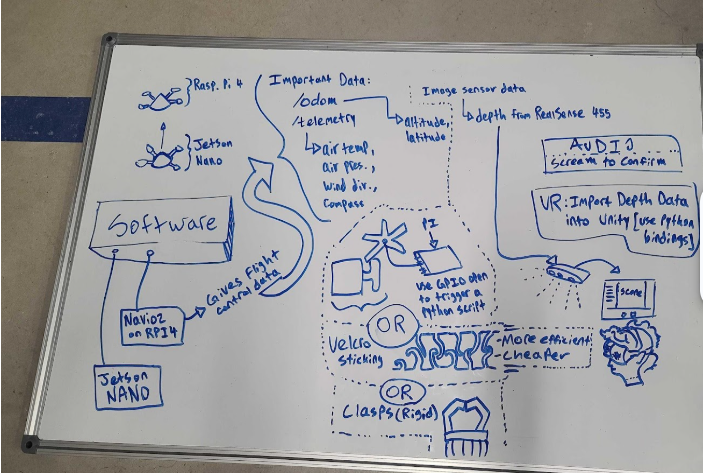 Rasp. Pi 4
Jetson
Nano
Software
Navio2
on RPI4
Jetson
NANO
Gives Flight
control data
Important Data:
/odom
/telemetry
altitude,
latitude
air temp,
air pres.,
wind dir.,
Compass
Image sensor data
depth from RealSense 455
AUDIO
scream to confirm
VR: Import Depth Data
into Unity [use Python
bindings]
PI
use GPIO open
to trigger a
python script
scene
OR
Velcro
sticking
-More efficient
-cheaper
OR
Clasps (Rigid)